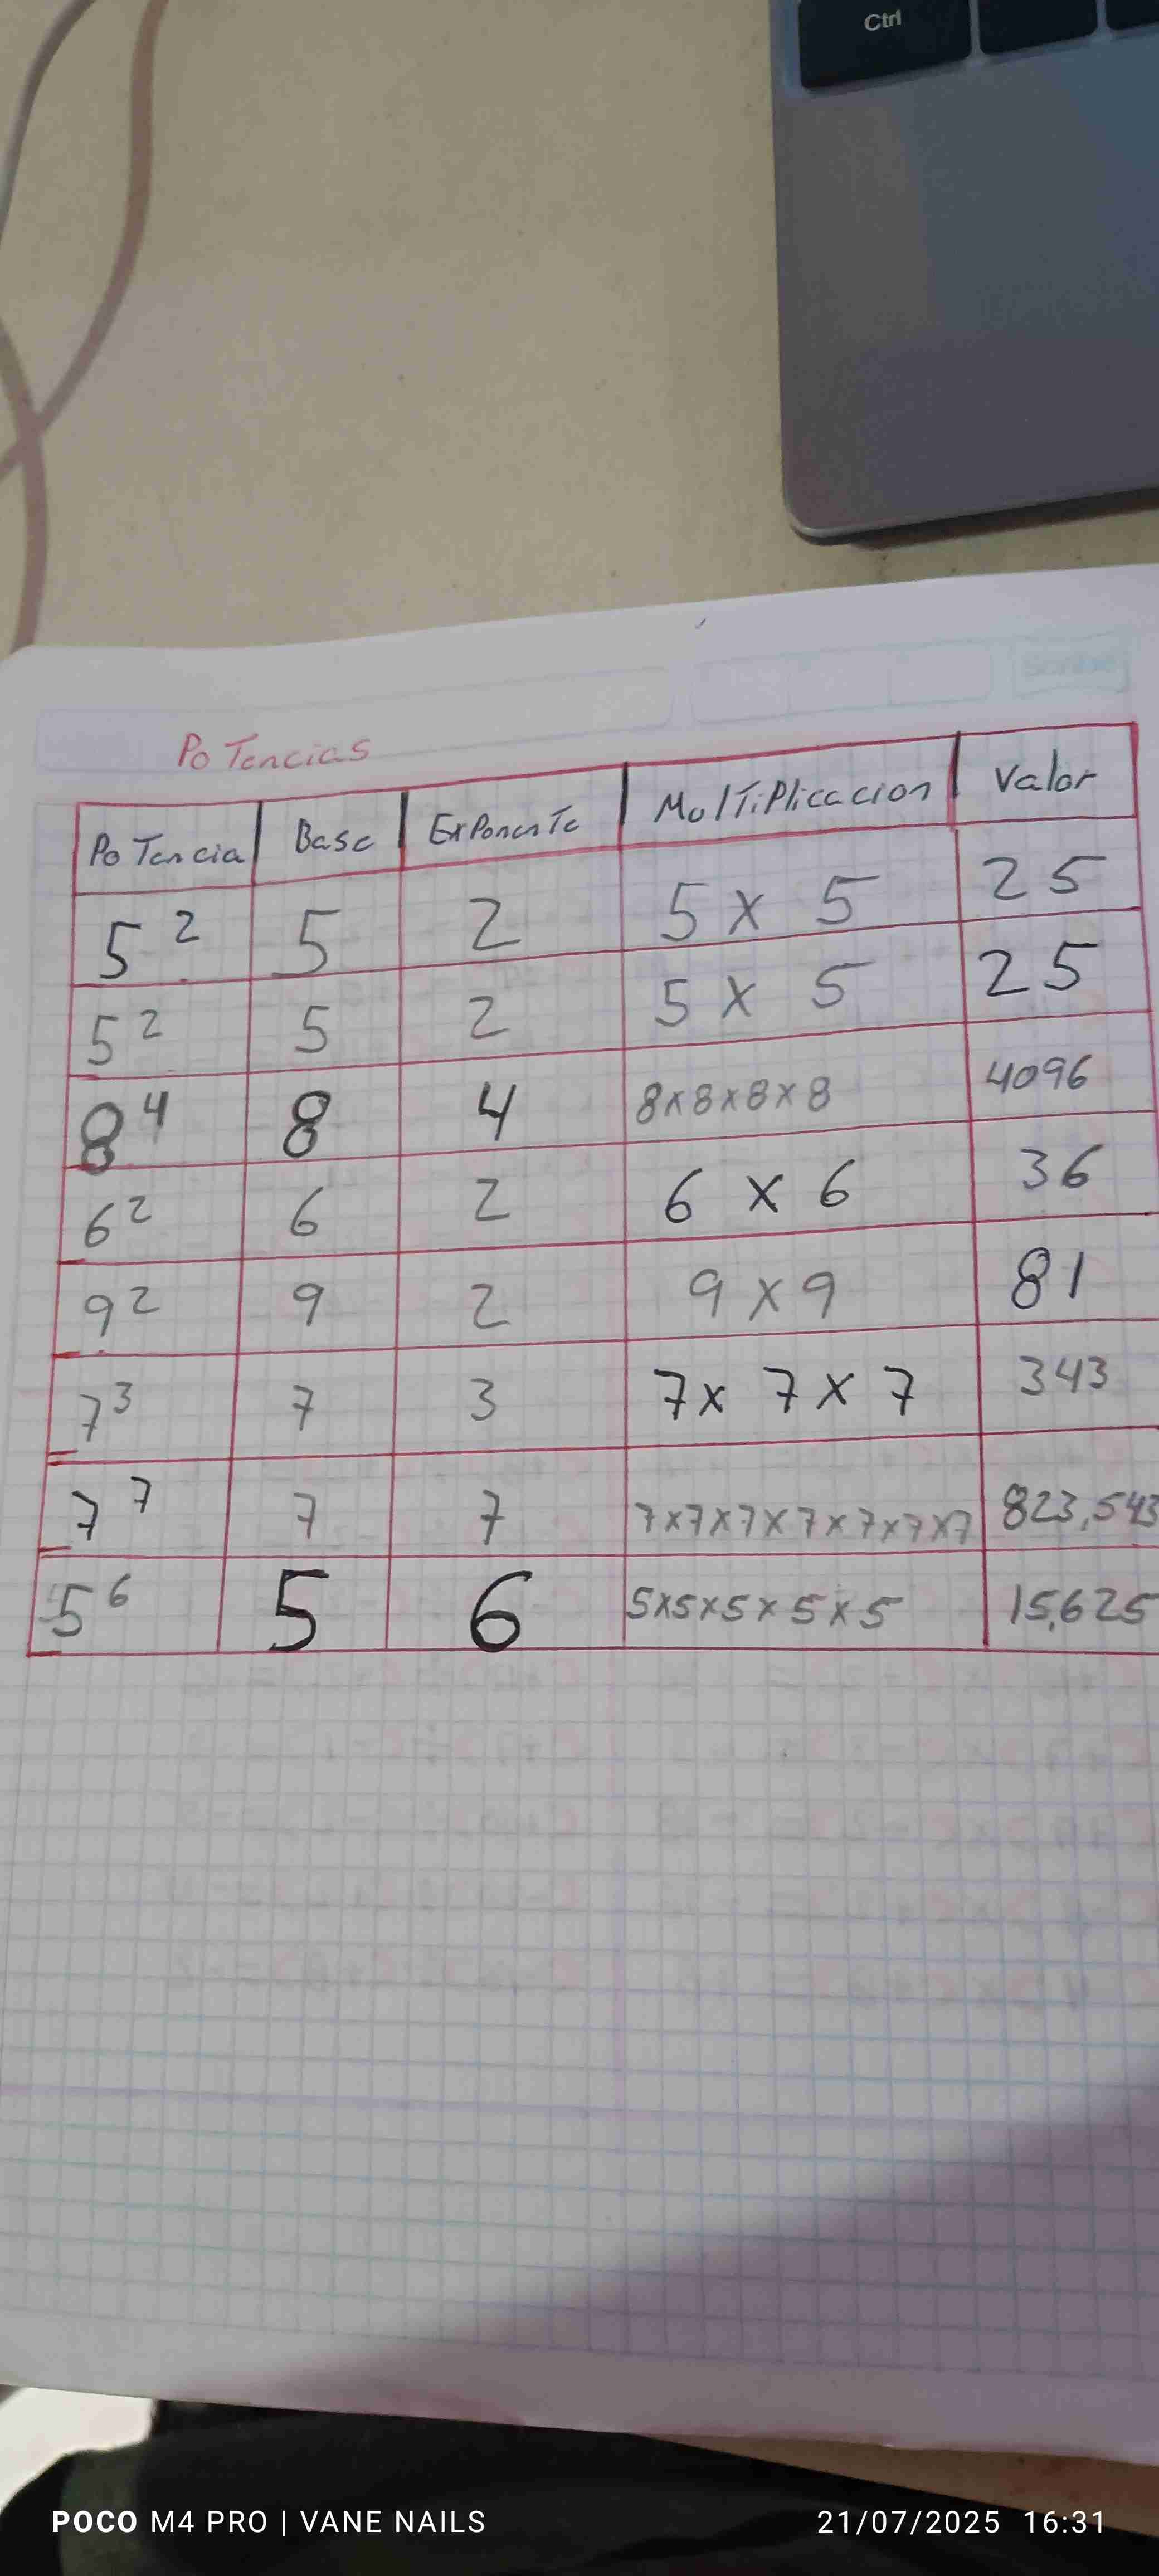 Ctrl
Scribe
PoTencias
PoTencia Base ExPonenTe MolTiPlicacion Valor
5² 5 2 5 x 5 25
5² 5 2 5 x 5 25
8⁴ 8 4 8x8x8x8 4096
6² 6 2 6 x 6 36
9² 9 2 9 x 9 81
7³ 7 3 7x 7 x 7 343
7⁷ 7 7 7x7x7x7x7x7x7 823,543
5⁶ 5 6 5x5x5x5x5 15,625
POCO M4 PRO | VANE NAILS 21/07/2025 16:31